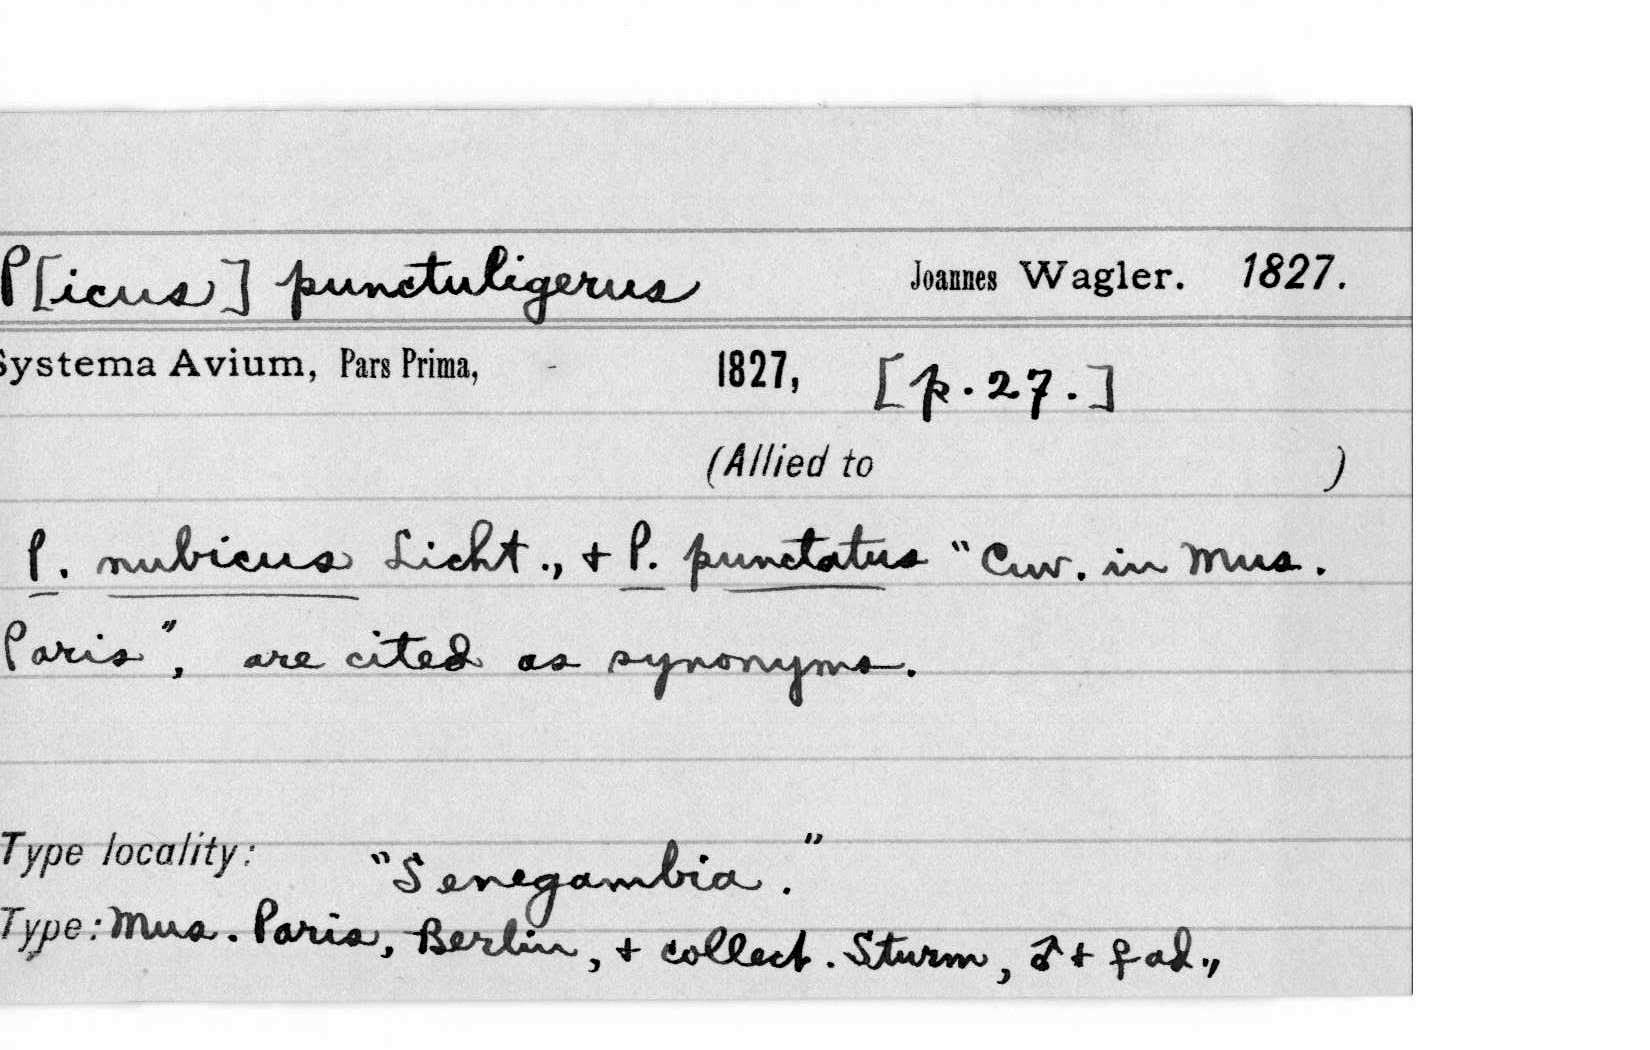 P[icus] punctuligerus Joannes Wagler. 1827.
Systema Avium, Pars Prima, - 1827, [p. 27.]
(Allied to )
P. nubicus Licht., + P. punctatus "Cuv. in Mus.
Paris", are cited as synonyms.
Type locality: "Senegambia."
Type: Mus. Paris, Berlin, + collect. Sturm, ♂ + ♀ ad.,